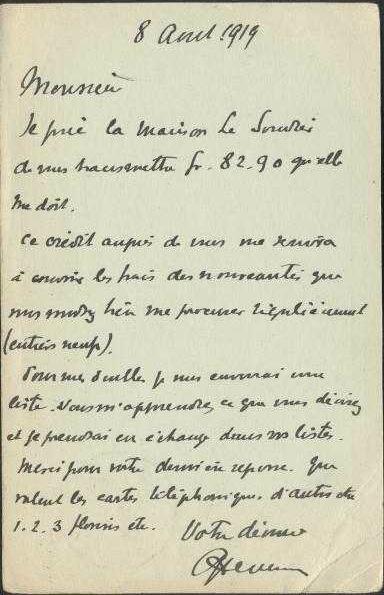 8 Aout 1919
Monsieur
Je prie la maison Le Soudier
de vous transmettre fr. 82.90 qu'elle
me doit.
Ce crédit auprès de vous me servira
à couvrir les frais des nouveautés que
vous voudrez bien me procurer régulièrement
(entiers neufs).
Pour mes doubles je vous enverrai une
liste. Vous m'apprendrez ce que vous désirez
et je prendrai en échange dans vos listes.
Merci pour votre dernière réponse. Que
valent les cartes téléphoniques d'Autriche
1.2.3 florins etc.
Votre dévoué